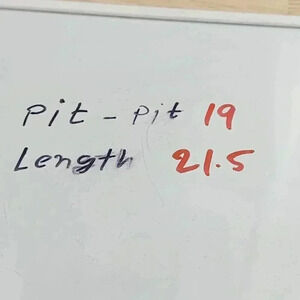 Pit - Pit 19
Length 21.5